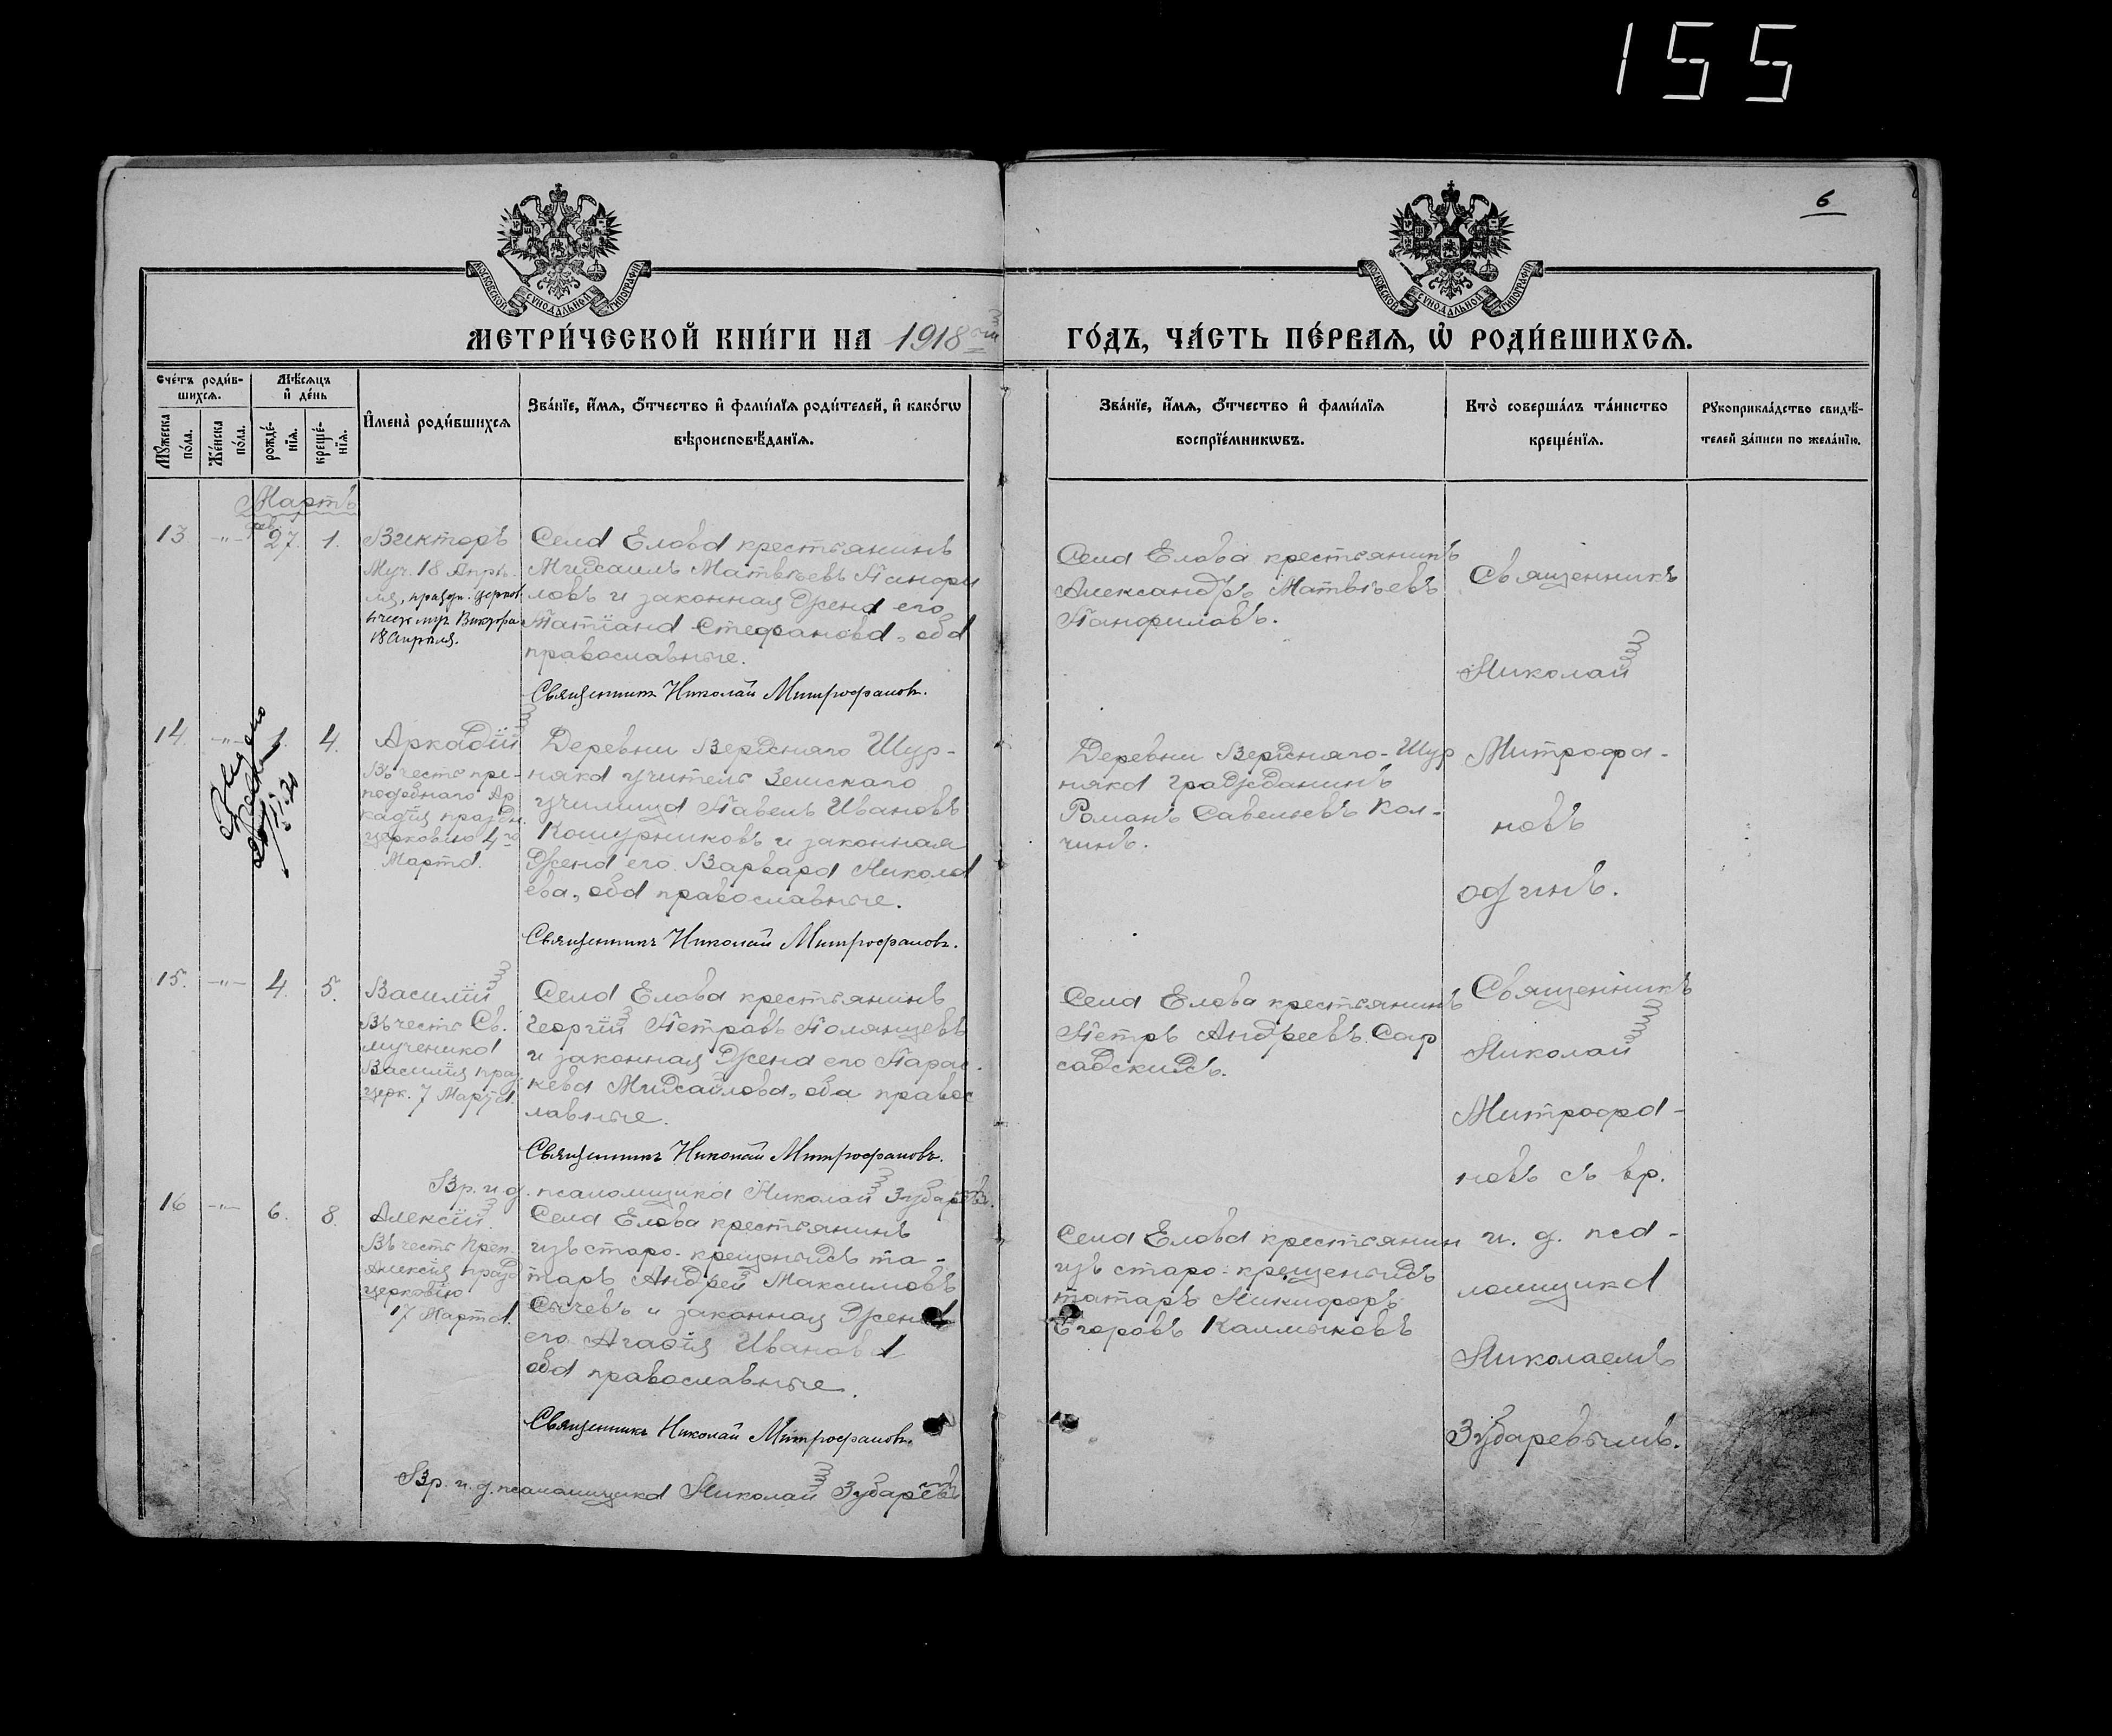 155
6
МОСКОВСКОЙ СѴНОДАЛЬНОЙ ТИПОГРАФІИ
МОСКОВСКОЙ СѴНОДАЛЬНОЙ ТИПОГРАФІИ
МЕТРИ́ЧЕСКОЙ КНИ́ГИ НА 1918 ый ГО́ДЪ, ЧА́СТЬ ПЕ́РВАѦ, Ѡ РОДИ́ВШИХСѦ.
Счетъ роди́в-
шихсѧ.
Мꙋжеска
по́ла.
Же́нска
по́ла.
Мѣ́сѧцъ
и҆ де́нь
рожде́-
нїѧ.
креще́-
нїѧ.
И҆мена̀ роди́вшихсѧ
Зва́нїе, и҆́мѧ, ѻ҆́тчество и҆ фами́лїѧ роди́телей, и҆ како́гѡ
вѣроисповѣ́данїѧ.
Зва́нїе, и҆́мѧ, ѻ҆́тчество и҆ фами́лїѧ
воспрїе́мникѡвъ.
Кто̀ соверша́лъ та́инство
креще́нїѧ.
Рꙋкоприкла́дство свидѣ́-
телей за́писи по жела́нїю.
Мартъ
13. -"- фев. 27. 1.
Викторъ
Муч. 18 Апрѣ-
ля, праздн. церков
18 Апрѣля.
Села Елова крестьянинъ
Михаилъ Матвѣевъ Панфи
ловъ и законная жена его
Татіана Стефанова, оба
православные.
Священникъ Николай Митрофановъ.
Села Елова крестьянинъ
Александръ Матвѣевъ
Панфиловъ.
Священникъ
Николай
14. -"- 1. 4.
Аркадій
Въ честь пре-
подобнаго Ар
кадія праздн.
церковію 4-го
Марта.
Деревни Верхняго Шур-
няка учитель Земскаго
училища Павелъ Ивановъ
Кошурниковъ и законная
жена его Варвара Никола
ева, оба православные.
Священникъ Николай Митрофановъ.
Деревни Верхняго-Шур
няка гражданинъ
Романъ Савельевъ Кол-
чинъ.
Митрофа-
новъ
одинъ.
15. -"- 4. 5.
Василій
Въ честь Св.
мученика
Василія праз.
церк. 7 Марта.
Села Елова крестьянинъ
Георгій Петровъ Полянцевъ
и законная жена его Парас-
кева Михайлова, оба правос
лавные.
Священникъ Николай Митрофановъ.
Вр. и. д. псаломщика Николай Зубаревъ.
Села Елова крестьянинъ
Петръ Андреевъ Сар
садскихъ.
Священникъ
Николай
Митрофа-
новъ съ вр.
16 -"- 6. 8.
Алексій.
Въ честь Преп.
Алексія празд
церковію
17 Марта.
Села Елова крестьянинъ
изъ старо-крещеныхъ та-
таръ Андрей Максимовъ
Сычевъ и законная жена
его Агафія Иванова
оба православные.
Священникъ Николай Митрофановъ.
Вр. и. д. псаломщика Николай Зубаревъ
Села Елова крестьянин
изъ старо-крещеныхъ
татаръ Никифоръ
Егоровъ Калмыковъ
и. д. пса-
ломщика
Николаемъ
Зубаревымъ.